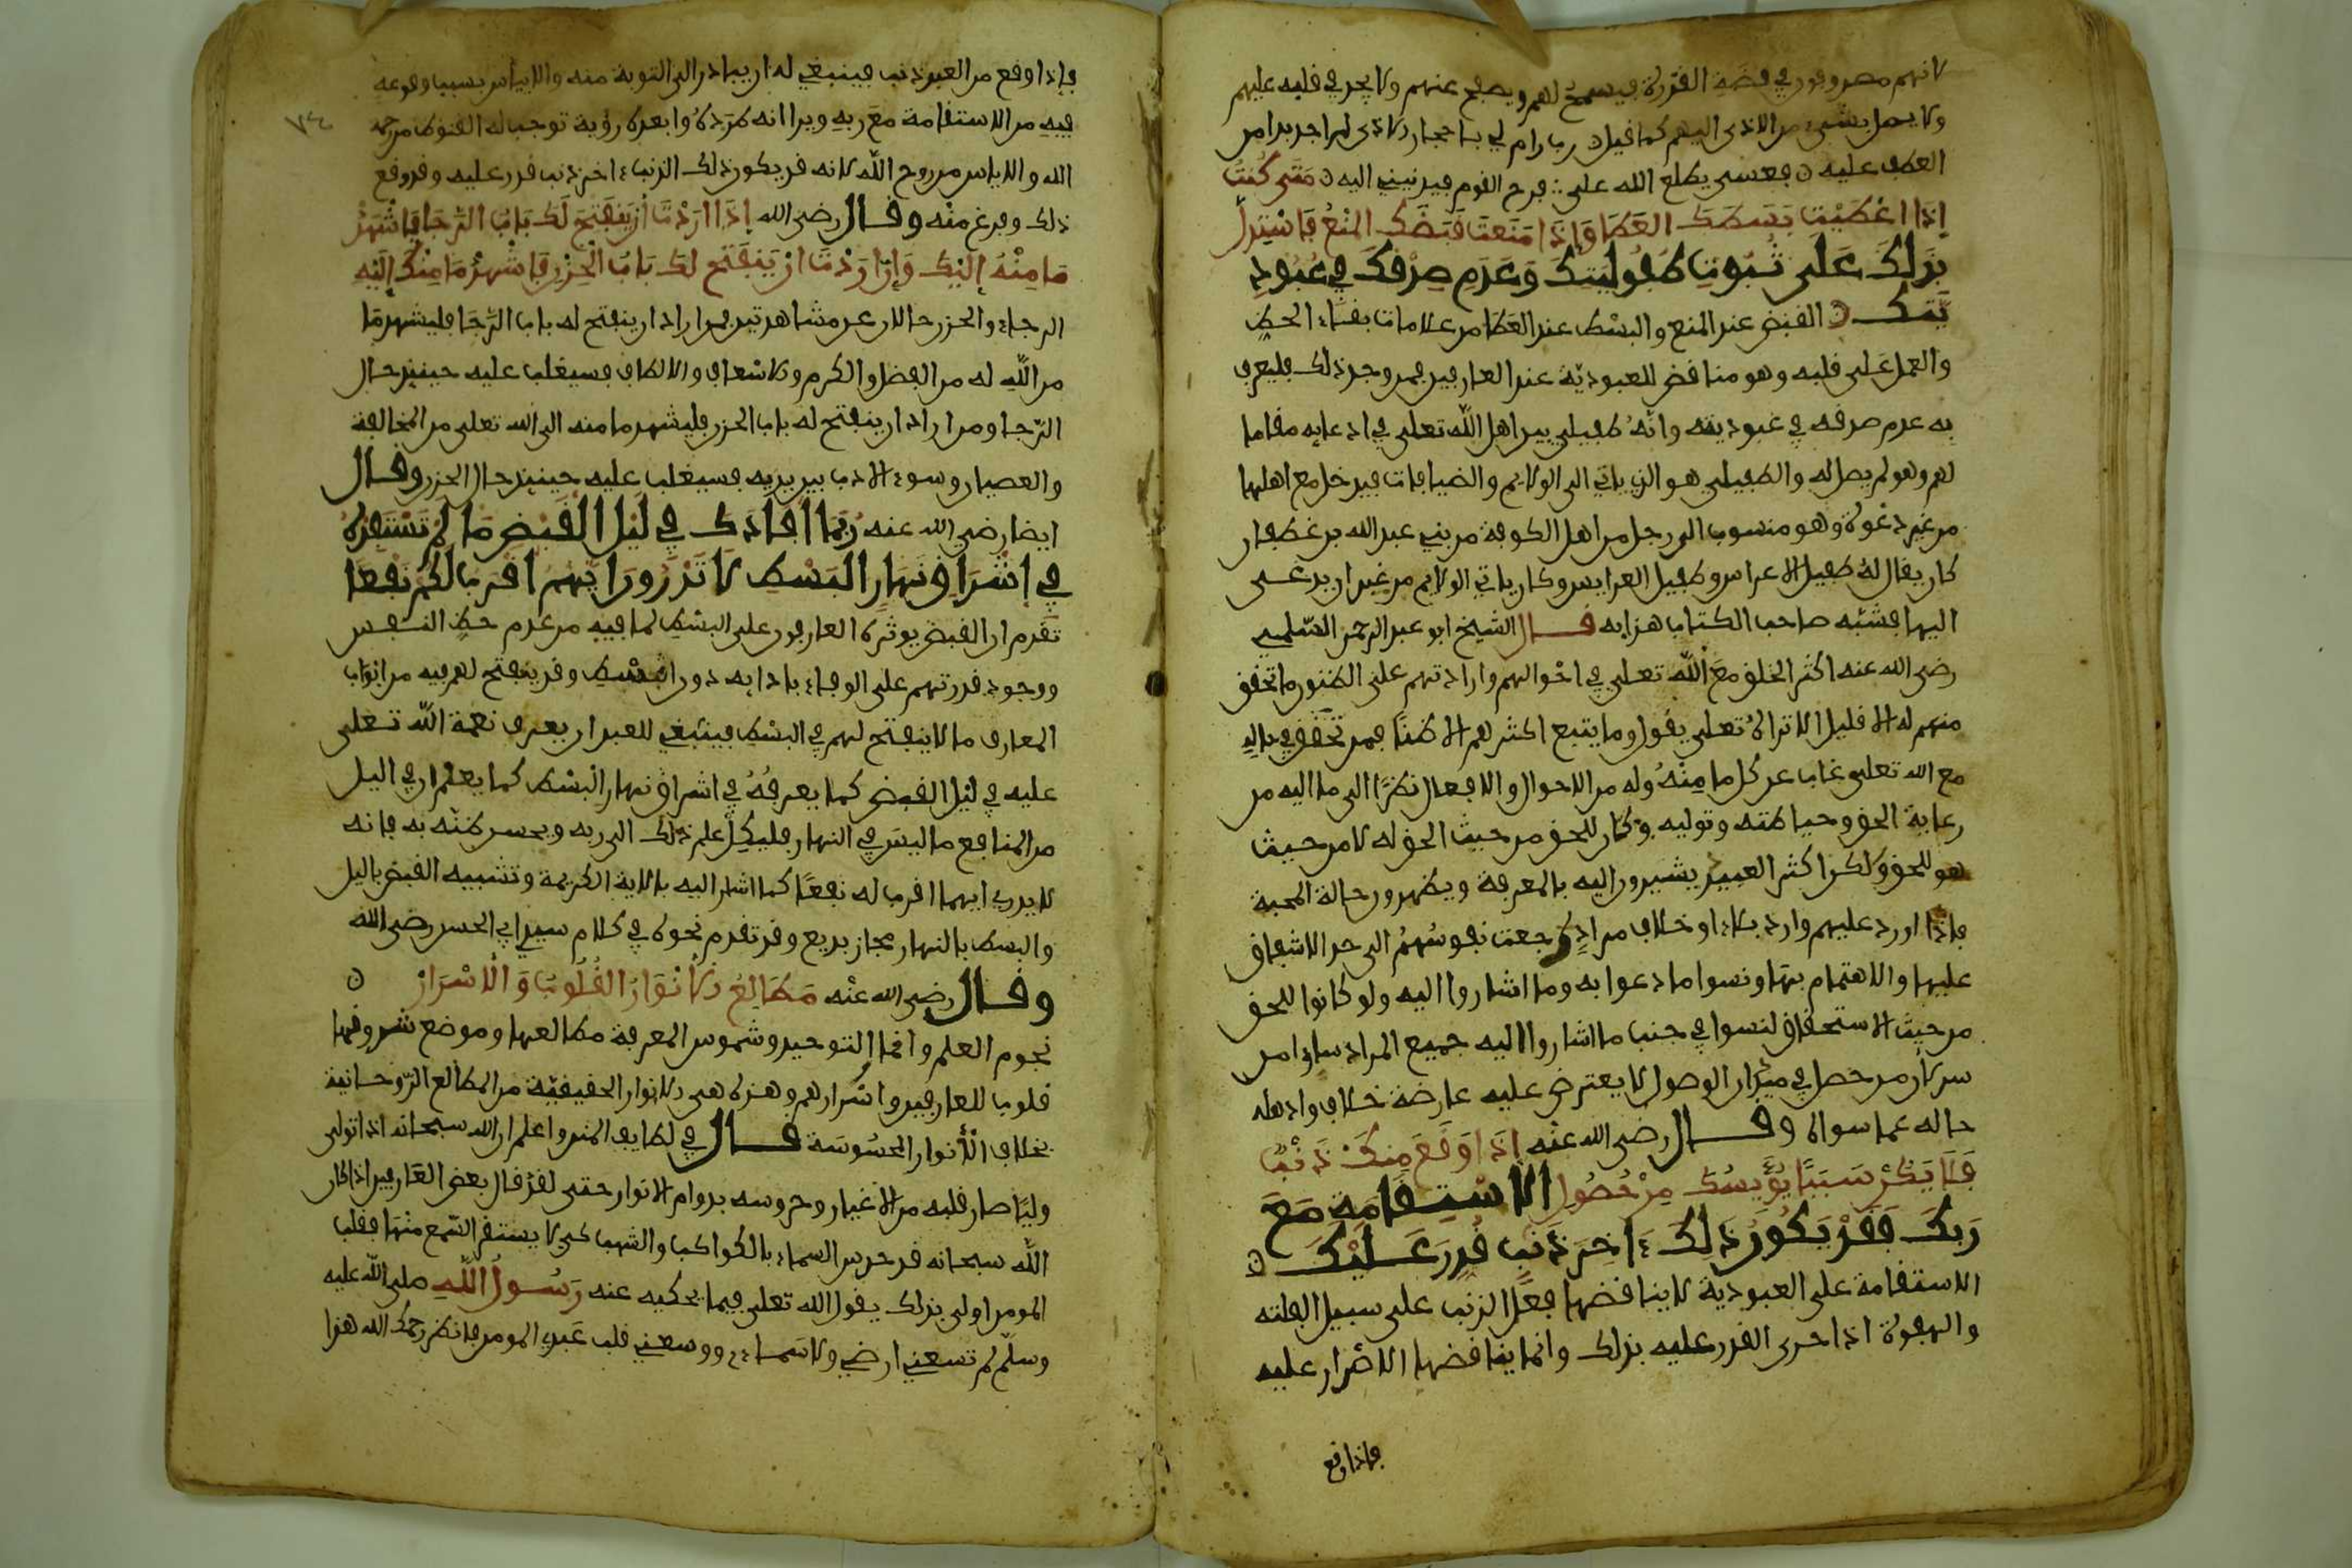 لانهم مصروفون في قبضة القدرة فيسمح لهم ويصفح عنهم ولا يجد في قلبه عليهم
ولا يصل بشيء من الاذى اليهم كما قيل رب رام لي باحجار الاذى لم اجد بدا من
العطف عليه فعسى يطلع الله على فرح القوم فيدنيني اليه متى كنت
إذا اعطيت بسطك العطا وإذا منعت قبضك المنع فاستدل
بذلك على ثبوت طفوليتك وعدم صدقك في عبود
يتك القبض عند المنع والبسط عند العطا من علامات بقاء الحظ
والعمل على قلبه وهو مناقض للعبودية عند العارفين فمن وجد ذلك فليعرف
به عدم صدقه في عبوديته وانه طفيلي بين اهل الله تعلى في ادعايه مقاما
لهم وهو لم يصل له والطفيلي هو الذي ياتي الى الولايم والضيافات فيدخل مع اهلها
من غير دعوة وهو منسوب الى رجل من اهل الكوفة من بني عبد الله بن غطفان
كان يقال له طفيل الاعراس وطفيل العرايس وكان ياتي الولايم من غير ان يدعى
اليها فشبه صاحب الكتاب هذا به قال الشيخ ابو عبد الرحمن السلمي
رضي الله عنه اكثر الخلق مع الله تعلى في احوالهم وارادتهم على الظنون ما تحقق
منهم له الا قليل الا تراه تعلى يقول وما يتبع اكثرهم الا ظنا فمن تحقق في حاله
مع الله تعلى غاب عن كل ما منه وله من الاحوال والافعال نظرا الى ما اليه من
رعاية الحق وحياطته وتوليه وكان للحق من حيث الحق له لا من حيث
هو للحق ولكن اكثر العبيد يشيرون اليه بالمعرفة ويظهرون حالة المحبة
فاذا اورد عليهم وارد بلاء او خلاف مراد رجعت نفوسهم الى حد الاشفاق
عليها والاهتمام بها ونسوا ما دعوا به وما اشاروا اليه ولو كانوا للحق
من حيث الاستحقاق لنسوا في جنب ما اشاروا اليه جميع المراد ساوا من
سر لان من حصل في ميدان الوصول لا يعترض عليه عارضة خلاف واذهله
حاله عما سواه وقال رضي الله عنه إذا وقع منك ذنب
فلا يكن سببا يؤيسك من حصول الاستقامة مع
ربك فقد يكون ذلك ءاخر ذنب قدر عليك
الاستقامة على العبودية لا يناقضها فعل الذنب على سبيل الفلتة
والهفوة اذا جرى القدر عليه بذلك وانما يناقضها الاصرار عليه
فاذا وقع
فإذا وقع من العبد ذنب فينبغي له ان يبادر الى التوبة منه والا ييأس بسبب وقوعه
فيه من الاستقامة مع ربه ويرا انه طرده وابعده رؤية توجب له القنوط من رحمة
الله والاياس من روح الله لانه قد يكون ذلك الذنب ءاخر ذنب قدر عليه وقد وقع
ذلك وفرغ منه وقال رضي الله إذا اردت أن ينفتح لك باب الرجا فاشهد
ما منه إليك وإذا اردت ان ينفتح لك باب الحزن فاشهد ما منك إليه
الرجاء والحزن حالان عن مشاهدتين فمن اراد ان ينفتح له باب الرجا فليشهد ما
من الله له من الفضل والكرم والاسعاف والالطاف فسيغلب عليه حينئذ حال
الرجا ومن اراد ان ينفتح له باب الحزن فليشهد ما منه الى الله تعلى من المخالفة
والعصيان وسوء الادب بين يديه فسيغلب عليه حينئذ حال الحزن وقال
ايضا رضي الله عنه ربما افادك في ليل القبض ما لم تستفده
في إشراق نهار البسط لا تدرون ايهم اقرب لكم نفعا
تقدم ان القبض يوثره العارفون على البسط لما فيه من عدم حظ النفس
ووجود قدرتهم على الوفاء بادابه دون البسط وقد ينفتح لهم فيه من ابواب
المعارف ما لا ينفتح لهم في البسط فينبغي للعبد ان يعرف نعمة الله تعلى
عليه في ليل القبض كما يعرفه في اشراق نهار البسط كما يعلم ان في اليل
من المنافع ما ليس في النهار فليكل علم ذلك الى ربه ويحسن ظنه به فانه
لا يدري ايهما اقرب له نفعا كما اشار اليه بالاية الكريمة وتشبيه القبض باليل
والبسط بالنهار مجاز بديع وقد تقدم نحوه في كلام سيدي ابي الحسن رضي الله
وقال رضي الله عنه مطالع الانوار القلوب والاسرار
نجوم العلم واقمار التوحيد وشموس المعرفة مطالعها وموضع شروقها
قلوب العارفين واسرارهم وهذه هي الانوار الحقيقية من المطالع الروحانية
بخلاف الأنوار المحسوسة قال في لطايف المنن واعلم ان الله سبحانه اذا تولى
وليا صان قلبه من الاغيار وحرسه بدوام الانوار حتى لقد قال بعض العارفين اذا كان
الله سبحانه قد حرس السماء بالكواكب والشهب كي لا يسترق السمع منها فقلب
المومن اولى بذلك يقول الله تعلى فيما يحكيه عنه رسول الله صلى الله عليه
وسلم لم تسعني ارضي ولا سماءي ووسعني قلب عبدي المومن فانظر رحمك الله هذا